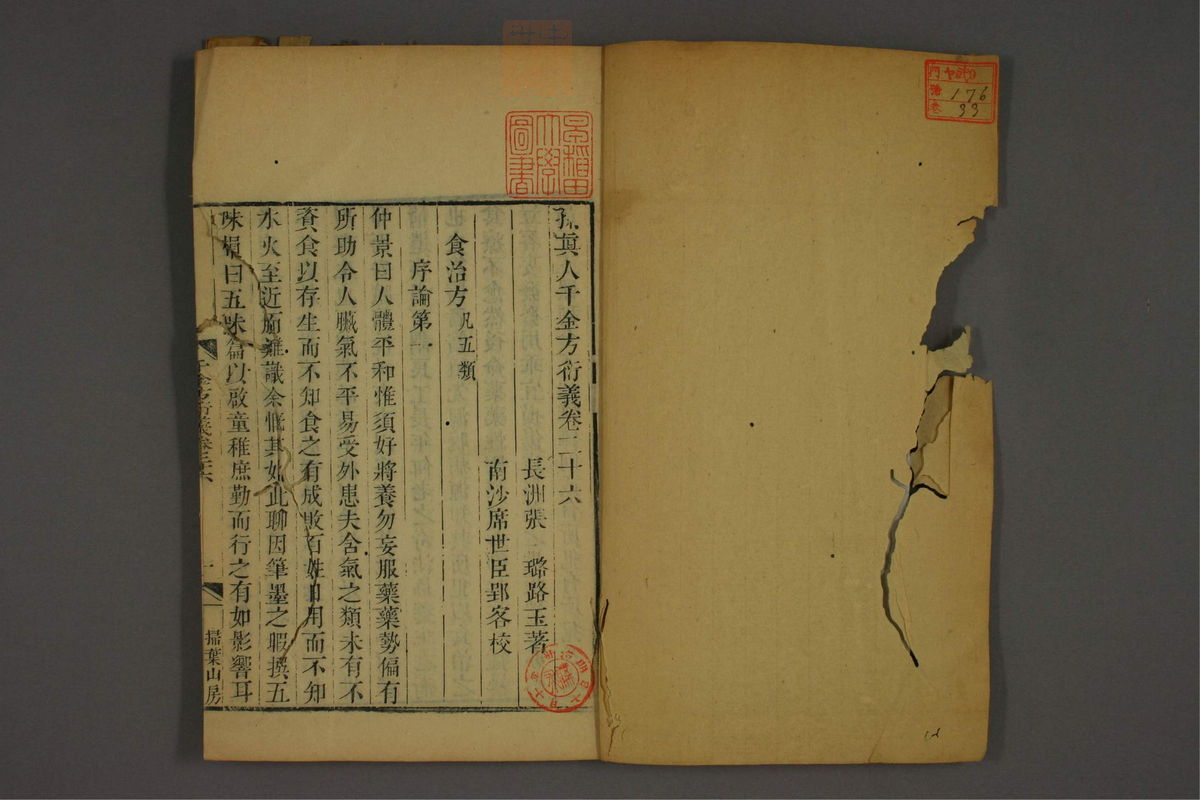 孫眞人千金方衍義卷二十六
長洲張　璐路玉著
南沙席世臣郢客校
食治方凡五類
序論第一
仲景曰人體平和惟須好將養勿妄服藥藥勢偏有
所助令人臟氣不平易受外患夫含氣之類未有不
資食以存生而不知食之有成敗百姓日用而不知
水火至近而難識余慨其如此聊因筆墨之暇撰五
味損益五味篇以啟童稚庶勤而行之有如影響耳
千金方衍義卷二十六
一
掃葉山房
早稲田
大學
圖書
門
號
卷
176
33